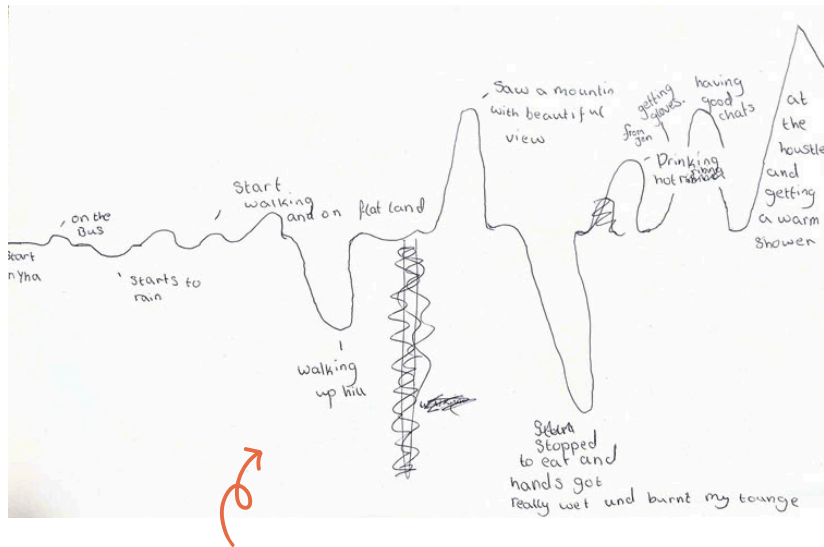 Start
nyha
on the
Bus
starts to
rain
Start
walking
and on flat land
walking
up hill
Saw a mountin
with beautiful
view
Stopped
to eat and
hands got
really wet and burnt my tounge
getting
gloves.
from jen
Drinking
hot
having
good
chats
at
the
houstle
and
getting
a warm
shower